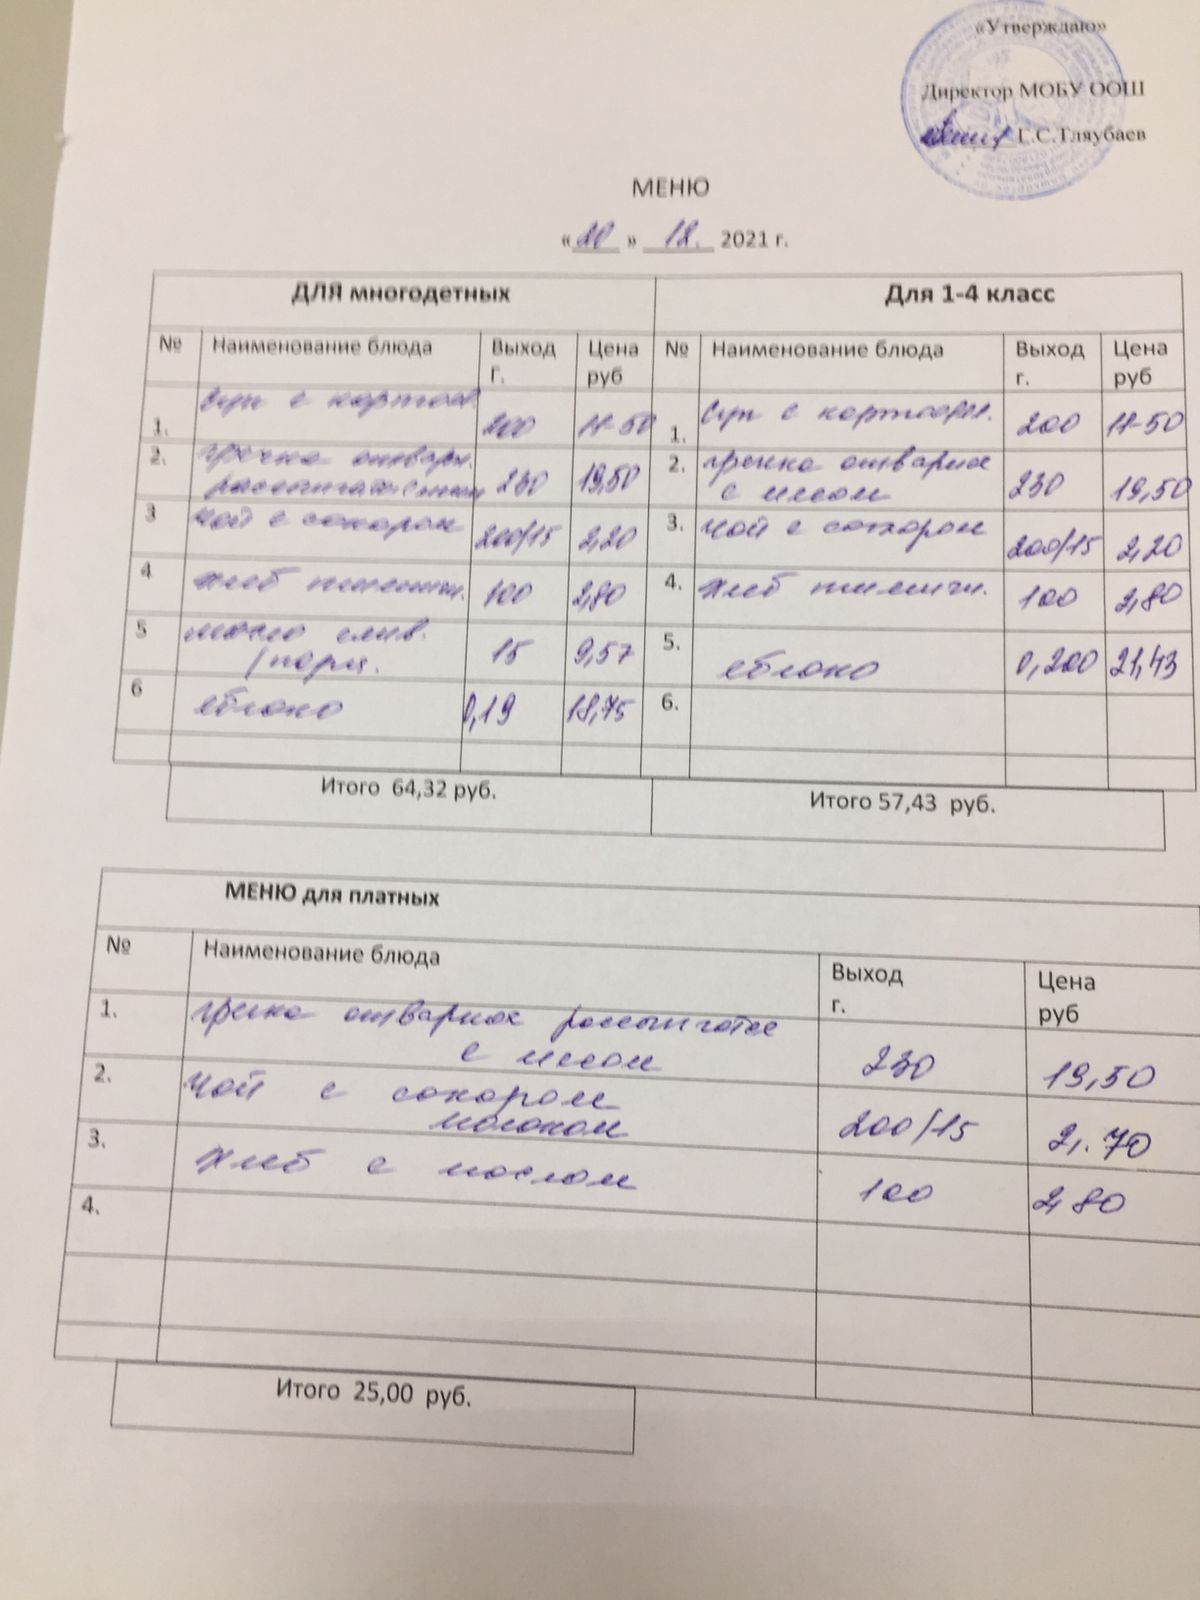 «Утверждаю»
Директор МОБУ ООШ
Г.С.Тляубаев
МЕНЮ
«20» 12. 2021 г.
ДЛЯ многодетных
№ Наименование блюда Выход г. Цена руб
1. суп с картоф. 200 11-50
2. гречка отварн. рассыпчатая с мясом 230 19,50
3 чай с сахаром 200/15 2,20
4 хлеб пшенични. 100 2,80
5 масло слив. /порц. 15 9,57
6 яблоко 0,19 18,75
Итого 64,32 руб.
Для 1-4 класс
№ Наименование блюда Выход г. Цена руб
1. суп с картофел. 200 11-50
2. гречка отварная с мясом 230 19,50
3. чай с сахаром 200/15 2,20
4. хлеб пшеничн. 100 2,80
5. яблоко 0,200 21,43
6.
Итого 57,43 руб.
МЕНЮ для платных
№ Наименование блюда Выход г. Цена руб
1. гречка отварная рассыпчатая
с мясом 230 19,50
2. чай с сахаром
молоком 200/15 2.70
3. хлеб с маслом 100 2,80
4.
Итого 25,00 руб.